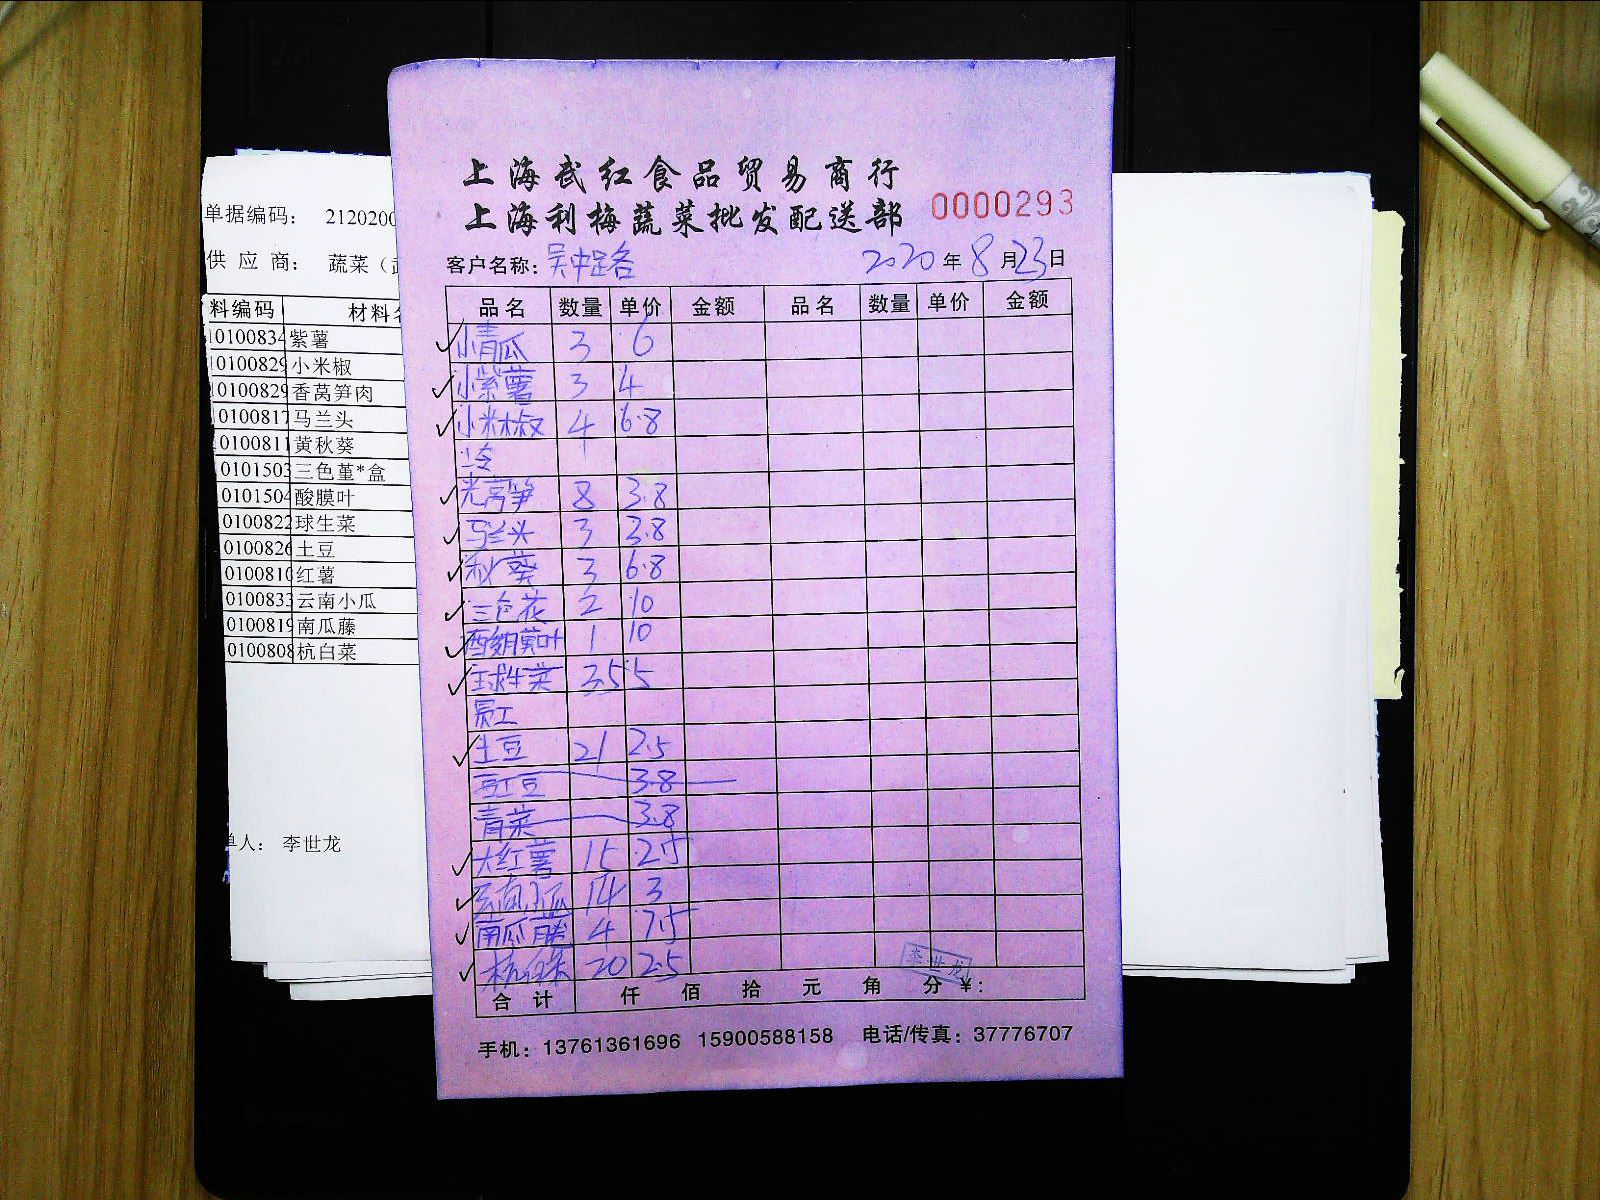 上海武红食品贸易商行
上海利梅蔬菜批发配送部 0000293
客户名称: 吴中路 2020年8月23日
品名 数量 单价 金额 品名 数量 单价 金额
小青瓜 3 6
小紫薯 3 4
小米椒 4 6.8
冷
光莴笋 8 3.8
马兰头 3 3.8
秋葵 3 6.8
三色花 2 10
酸膜叶 1 10
球生菜 3.5 5
员工
土豆 21 2.5
豇豆 3.8
青菜 3.8
大红薯 15 2.5
云南小瓜 14 3
南瓜藤 4 7.5
杭白菜 20 2.5
李世龙
合计 仟 佰 拾 元 角 分 ¥:
手机: 13761361696 15900588158 电话/传真: 37776707
单据编码: 2120200
供应商: 蔬菜(
料编码 材料
0100834 紫薯
0100829 小米椒
0100829 香莴笋肉
0100817 马兰头
0100811 黄秋葵
0101503 三色堇*盒
0101504 酸膜叶
0100822 球生菜
0100826 土豆
0100810 红薯
0100833 云南小瓜
0100819 南瓜藤
0100808 杭白菜
单人: 李世龙